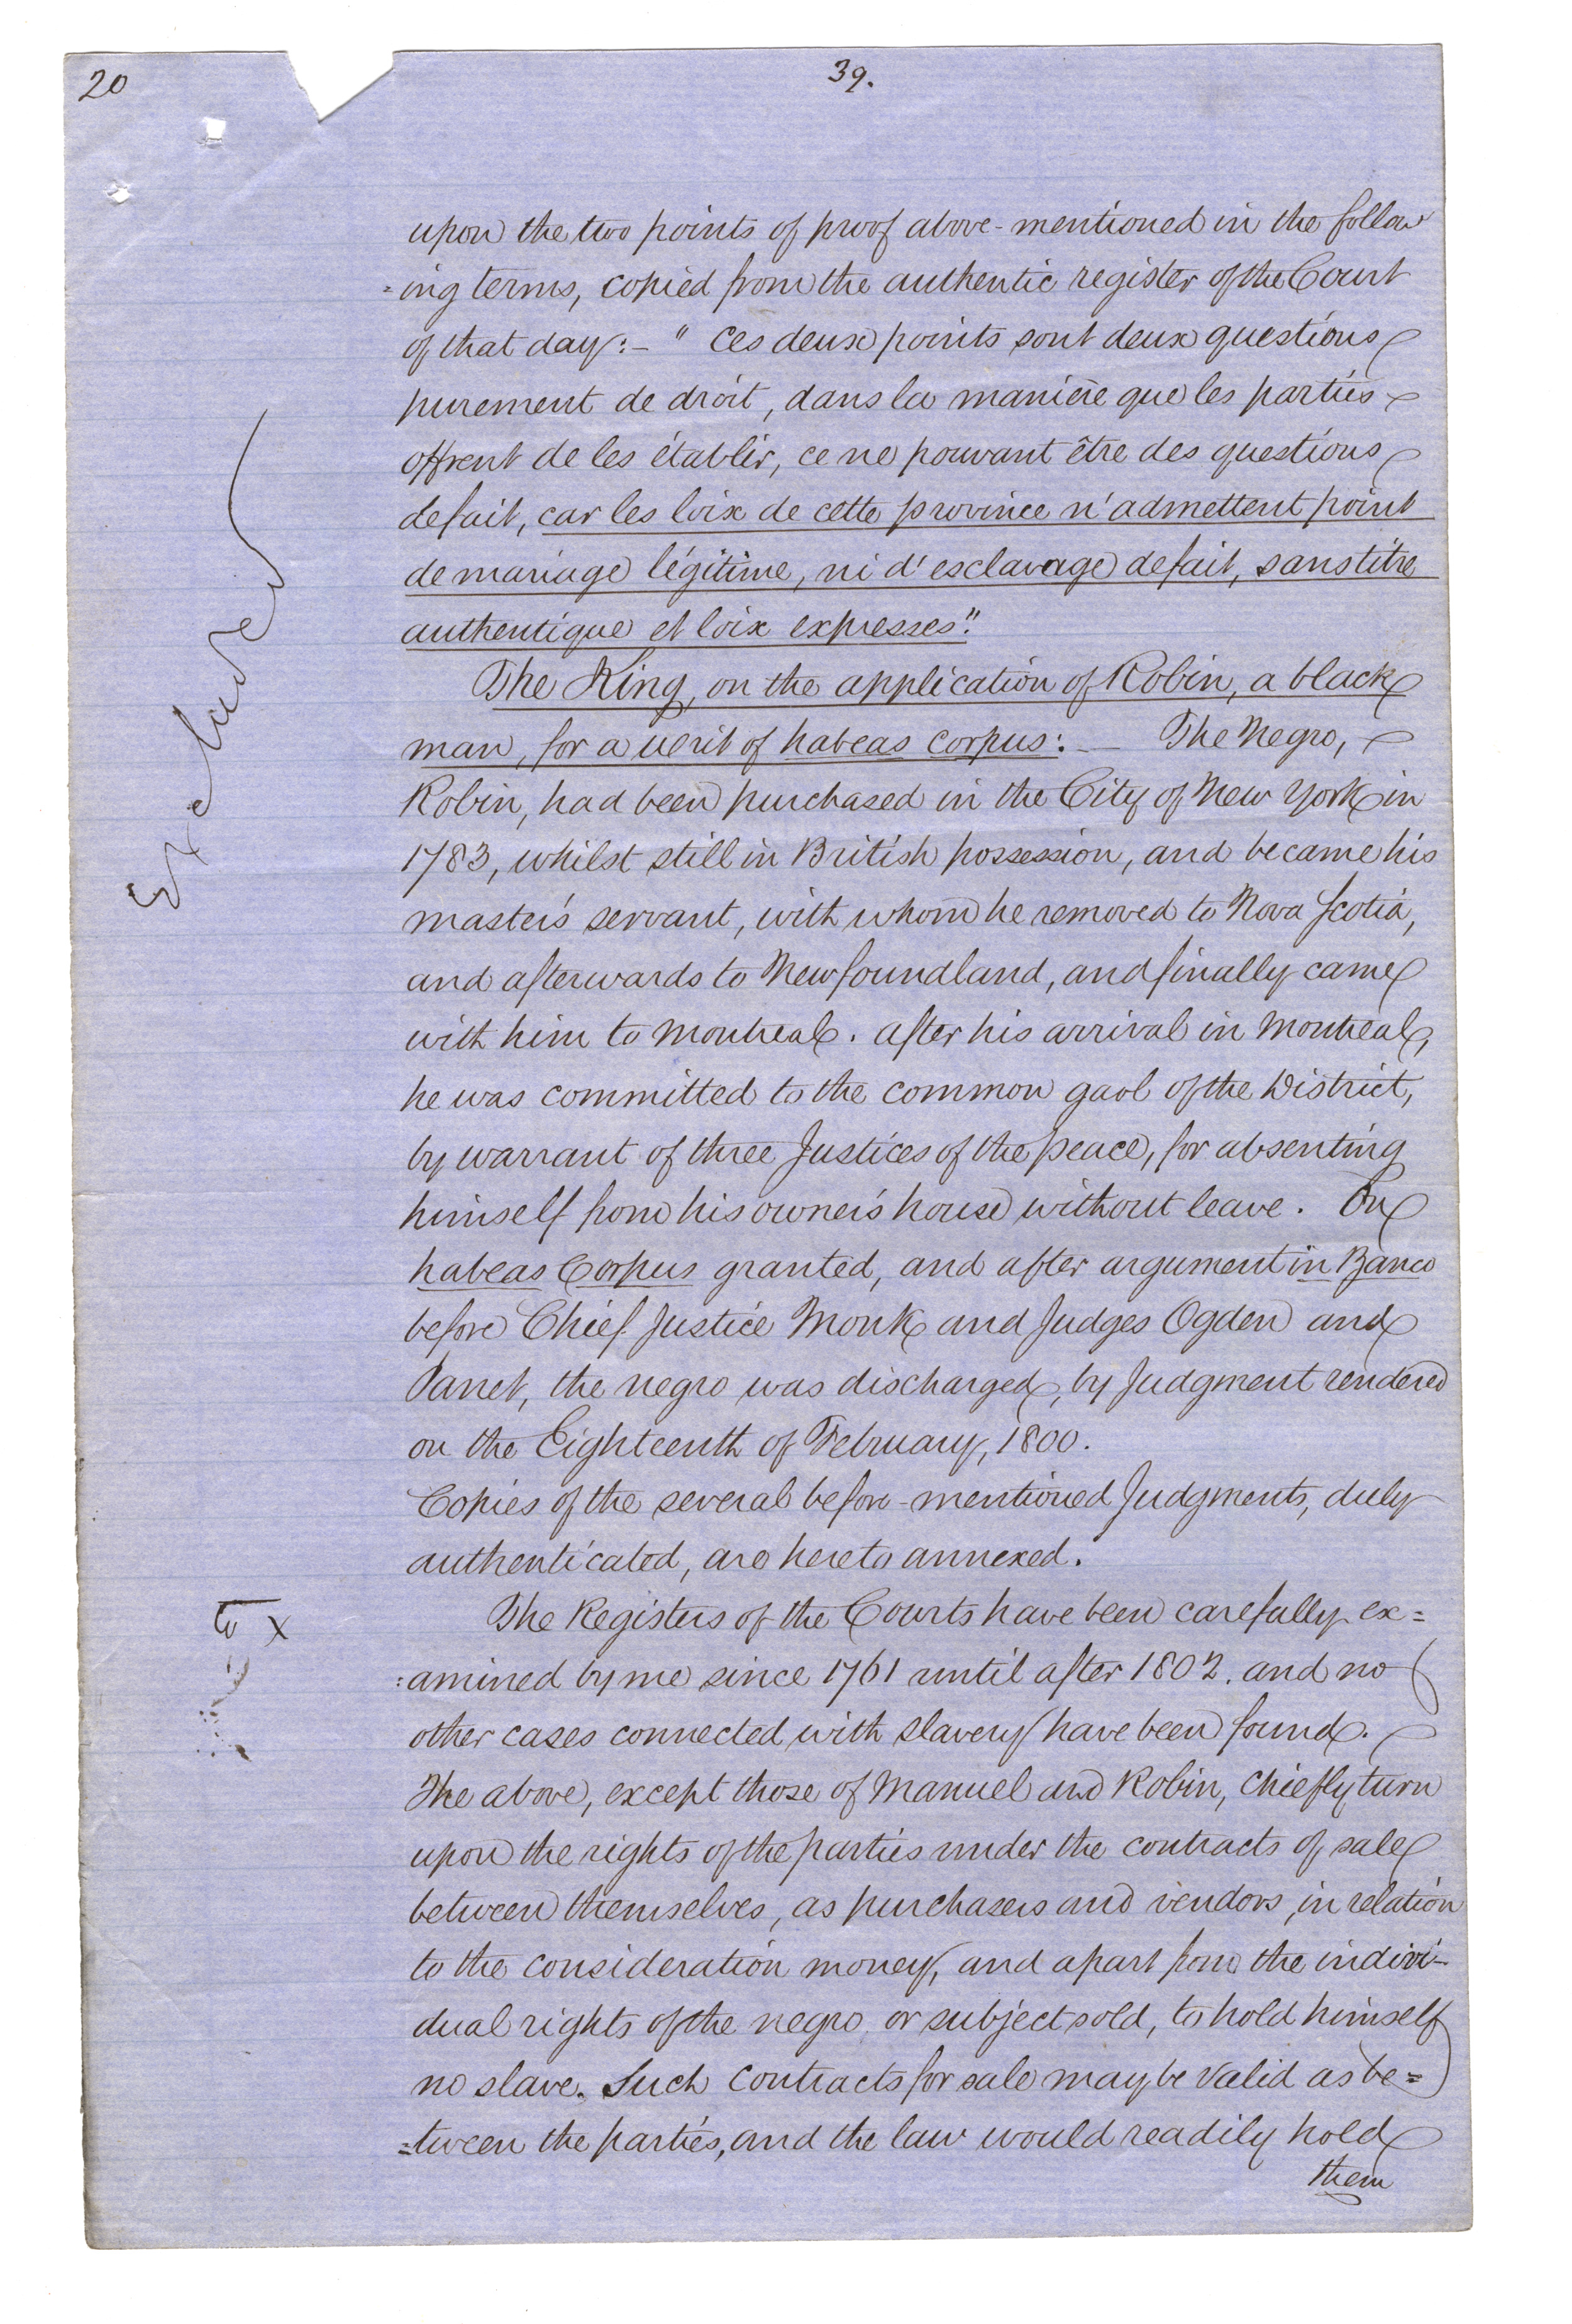 20
39.
upon the two points of proof above-mentioned in the follow
=ing terms, copied from the authentic register of the Court
of that day:- " Ces deux points sont deux questions
purement de droit, dans la manière que les parties
offrent de les établir, ce ne pouvant être des questions
de fait, car les loix de cette province n'admettent point
de mariage légitime, ni d'esclavage de fait, sans titre
authentique et loix expresses".
The King, on the application of Robin, a black
man, for a writ of habeas corpus: — The Negro,
Robin, had been purchased in the City of New York in
1783, whilst still in British possession, and became his
master's servant, with whom he removed to Nova Scotia,
and afterwards to Newfoundland, and finally came
with him to Montreal. After his arrival in Montreal,
he was committed to the common gaol of the District,
by warrant of three Justices of the peace, for absenting
himself from his owner's house without leave. On
habeas Corpus granted, and after argument in Banco
before Chief Justice Monk and Judges Ogden and
Panet, the negro was discharged, by Judgment rendered
on the Eighteenth of February, 1800.
Copies of the several before-mentioned Judgments, duly
authenticated, are hereto annexed.
The Registers of the Courts have been carefully ex=
=amined by me since 1761 until after 1802. and no
other cases connected with slavery have been found.
The above, except those of Manuel and Robin, chiefly turn
upon the rights of the parties under the contracts of sale
between themselves, as purchasers and vendors, in relation
to the consideration money, and apart from the indivi-
dual rights of the negro or subject sold, to hold himself
no slave. Such contracts for sale may be valid as be=
=tween the parties, and the law would readily hold
them